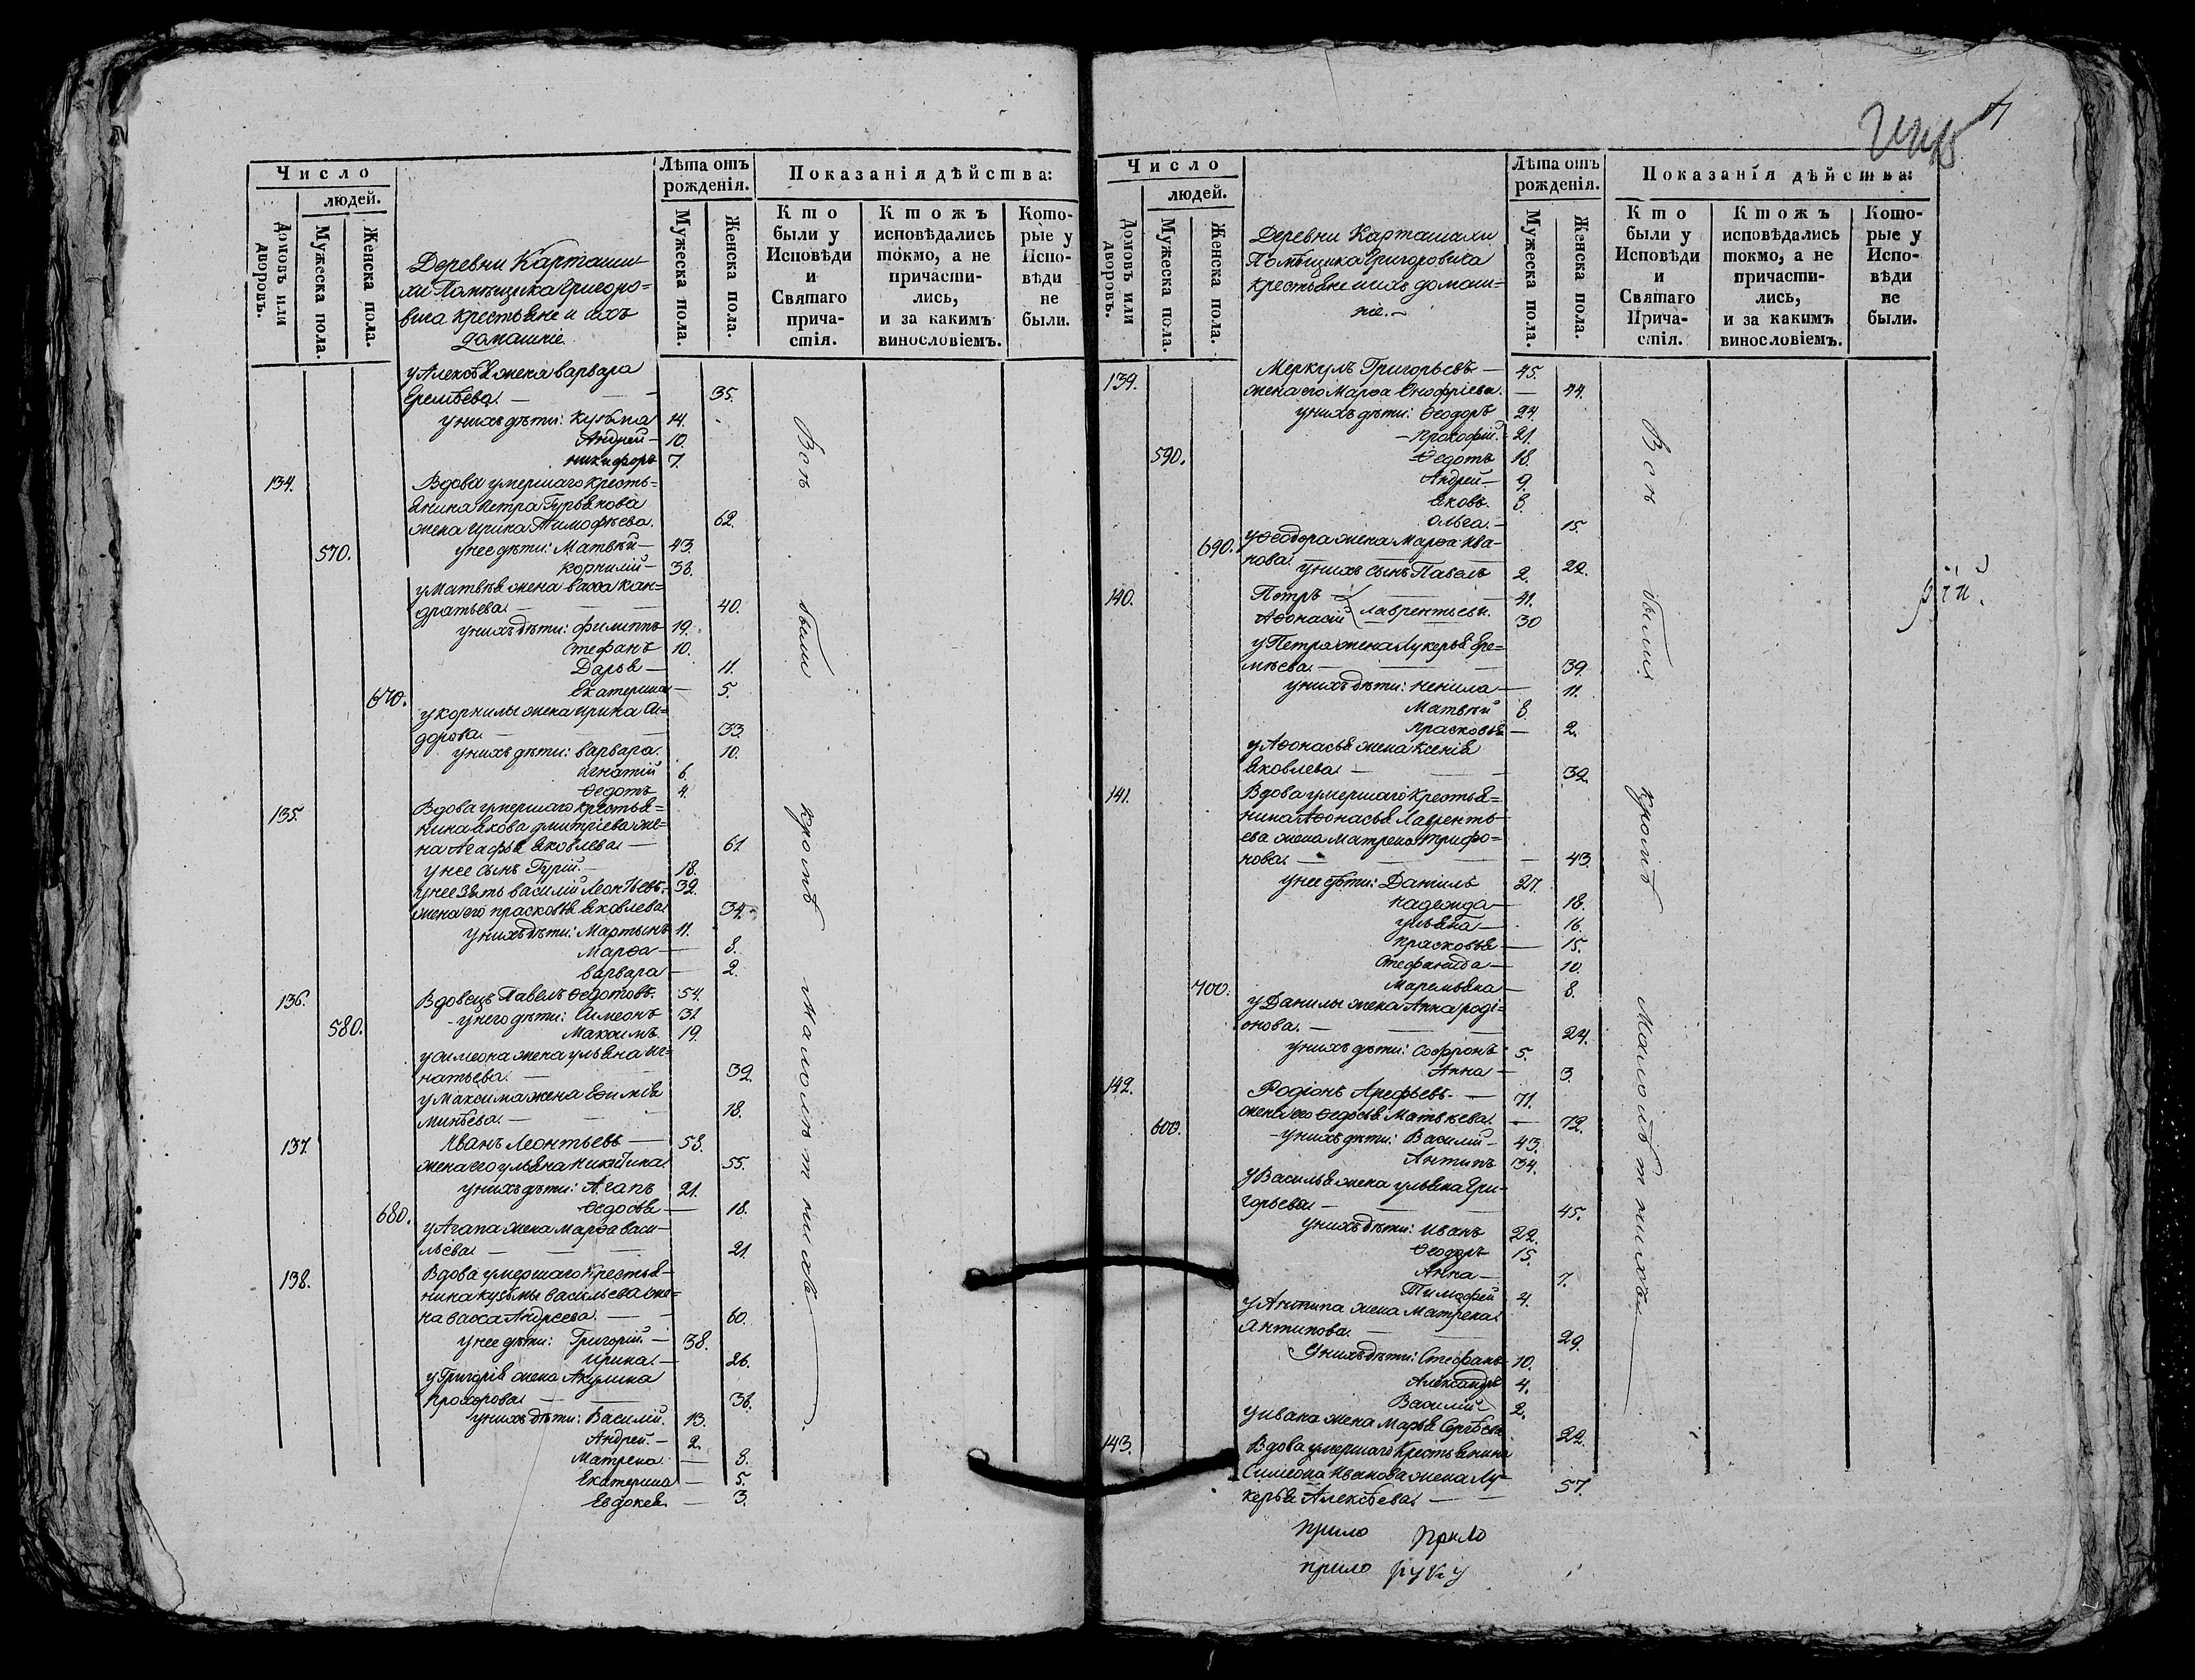 Число
людей.
Домовъ или дворовъ.
Мужеска пола.
Женска пола.
Деревни Карташи-
хи Помѣщика Григоро=
вича крестьяне и ихъ
домашніе
Лѣта отъ
рожденія.
Мужеска пола.
Женска пола.
Показанія дѣйства:
Кто
были у
Исповѣди
и
Святаго
прича-
стія.
Ктожъ
исповѣдались
токмо, а не
причасти-
лись,
и за какимъ
винословіемъ.
Кото-
рые у
Испо-
вѣди
не
были.
у Алексѣя жена варвара
Еремѣева. — 35.
у нихъ дѣти: Кузьма 14.
Андрей — 10.
никифоръ 7.
134. Вдова умершаго кресть=
янина Петра Гурьянова
жена Ирина Тимофѣева. 62.
570. у нее дѣти: Матвѣй — 43.
корнилій — 38.
у Матвѣя жена васса Кан=
дратьева. — 40.
у нихъ дѣти: филиппъ 19.
Стефанъ 10.
Дарья — 11.
670. Екатерина — 5.
у корнилы жена Ирина Си=
дорова. — 33.
у нихъ дѣти: варвара. 10.
игнатій 6.
Ѳедотъ 4.
135. Вдова умершаго крестья=
нина якова дмитріева же=
на Агафья яковлева — 61
у нее сынъ Гурій. — 18.
у нее зять василій Леонтьевъ. 32.
жена его прасковья яковлева. 34.
у нихъ дѣти: Мартынъ 11.
Марѳа — 8.
варвара — 2.
136. Вдовецъ Павелъ Ѳедотовъ. 54.
у него дѣти: Симеонъ 31
580. Максимъ. 19.
у симеона жена ульяна иг=
натьева. — 32.
у Максима жена Евѳимія
Минѣева. — 18.
137. Иванъ Леонтьевъ — 53.
жена его ульяна никитина. 55.
у нихъ дѣти: Агапъ 21.
680. Ѳедосья — 18.
у Агапа жена марѳа васи-
льева. — 21
138. Вдова умершаго крестья-
нина кузьмы васильева же=
на васса Андреева. — 60.
у нее дѣти: Григорій. — 38.
Ирина. — 26.
у Григорія жена Акулина
прохорова. — 38.
у нихъ дѣти: Василій. 13.
Андрей. — 2.
Матрена. — 8.
Екатерина — 5.
Евдокея. — 3.
Всѣ были кромѣ малолѣтнихъ.
Число
людей.
Домовъ или дворовъ.
Мужеска пола.
Женска пола.
Деревни Карташихи
Помѣщика Григоровича
крестьяне и ихъ домаш=
ніе. —
Лѣта отъ
рожденія.
Мужеска пола.
Женска пола.
Показанія дѣйства:
Кто
были у
Исповѣди
и
Святаго
Прича-
стія.
Ктожъ
исповѣдались
токмо, а не
причасти-
лись,
и за какимъ
винословіемъ.
Кото-
рые у
Испо-
вѣди
не
были.
139. Меркулъ Григорьевъ — 45.
жена его Марѳа Онофріева. — 44.
у нихъ дѣти: Ѳеодоръ 24.
— Прокофій. 21.
590. Ѳедотъ 18.
Андрей — 9.
яковъ. 3.
Ольга. — 15.
690. у Ѳеодора жена Марѳа Ива-
нова. — 22.
у нихъ сынъ Павелъ 2.
140. Петръ — 41.
Аѳонасій лаврентьевы. 30
у Петра жена Лукерья Ере=
мѣева. — 39.
у нихъ дѣти: Ненила — 11.
Матвѣй 3.
Прасковья — 2.
у Аѳонасья жена Ксенія
яковлева. — 32
141. Вдова умершаго крестья=
нина Аѳонасья Лавренть-
ева жена Матрена трифо=
нова. — 43.
у нее дѣти: Данилъ 27.
надежда — 18.
ульяна — 16.
прасковья — 15.
Стефанида — 10.
700. Маремьяна — 8.
у Данилы жена Анна роді=
онова. — 24.
у нихъ дѣти: Софронъ 5.
Анна — 3.
142. Родіонъ Арефьевъ. — 71.
жена его Ѳедосья Матвѣева. — 72.
600. у нихъ дѣти: Василій — 43.
Антипъ 34.
у Василья жена ульяна Гри-
горьева — 45.
у нихъ дѣти: Иванъ 22.
Ѳеодоръ 15.
Анна — 7.
Тимофей 4.
у Антипа жена Матрена.
Антипова. — 29.
у нихъ дѣти: Стефанъ 10.
Александръ 4.
Василій — 2.
у ивана жена Марья Сергѣева 22.
143. Вдова умершаго крестьянина
Симеона Иванова жена Лу-
керья Алексѣева. — 57.
Всѣ были кромѣ Малолѣтнихъ.
рѣй.
прило прило
прило руку